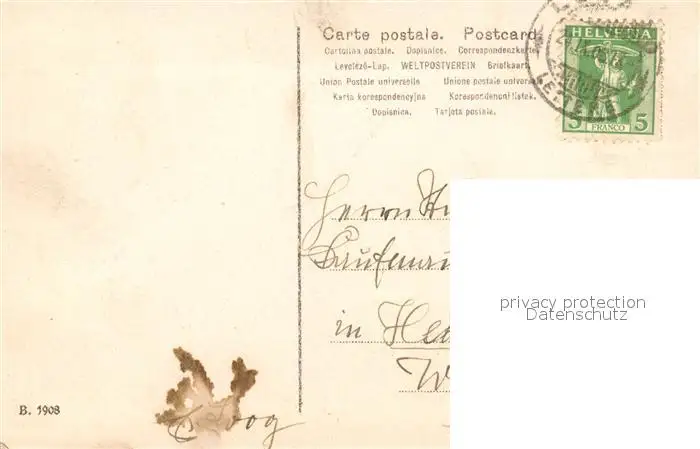 Carte postale. Postcard
Cartolina postale. Dopisnice. Correspondenzkarte
Levelező-Lap. WELTPOSTVEREIN Briefkaart.
Union Postale universelle Unione postale universale
Karta korespondencyjna Korespondenoni listek.
Dopisnica. Tarjeta postale.
HELVETIA
5 FRANCO 5
Herrn
Kaufmann
in
privacy protection
Datenschutz
B. 1908